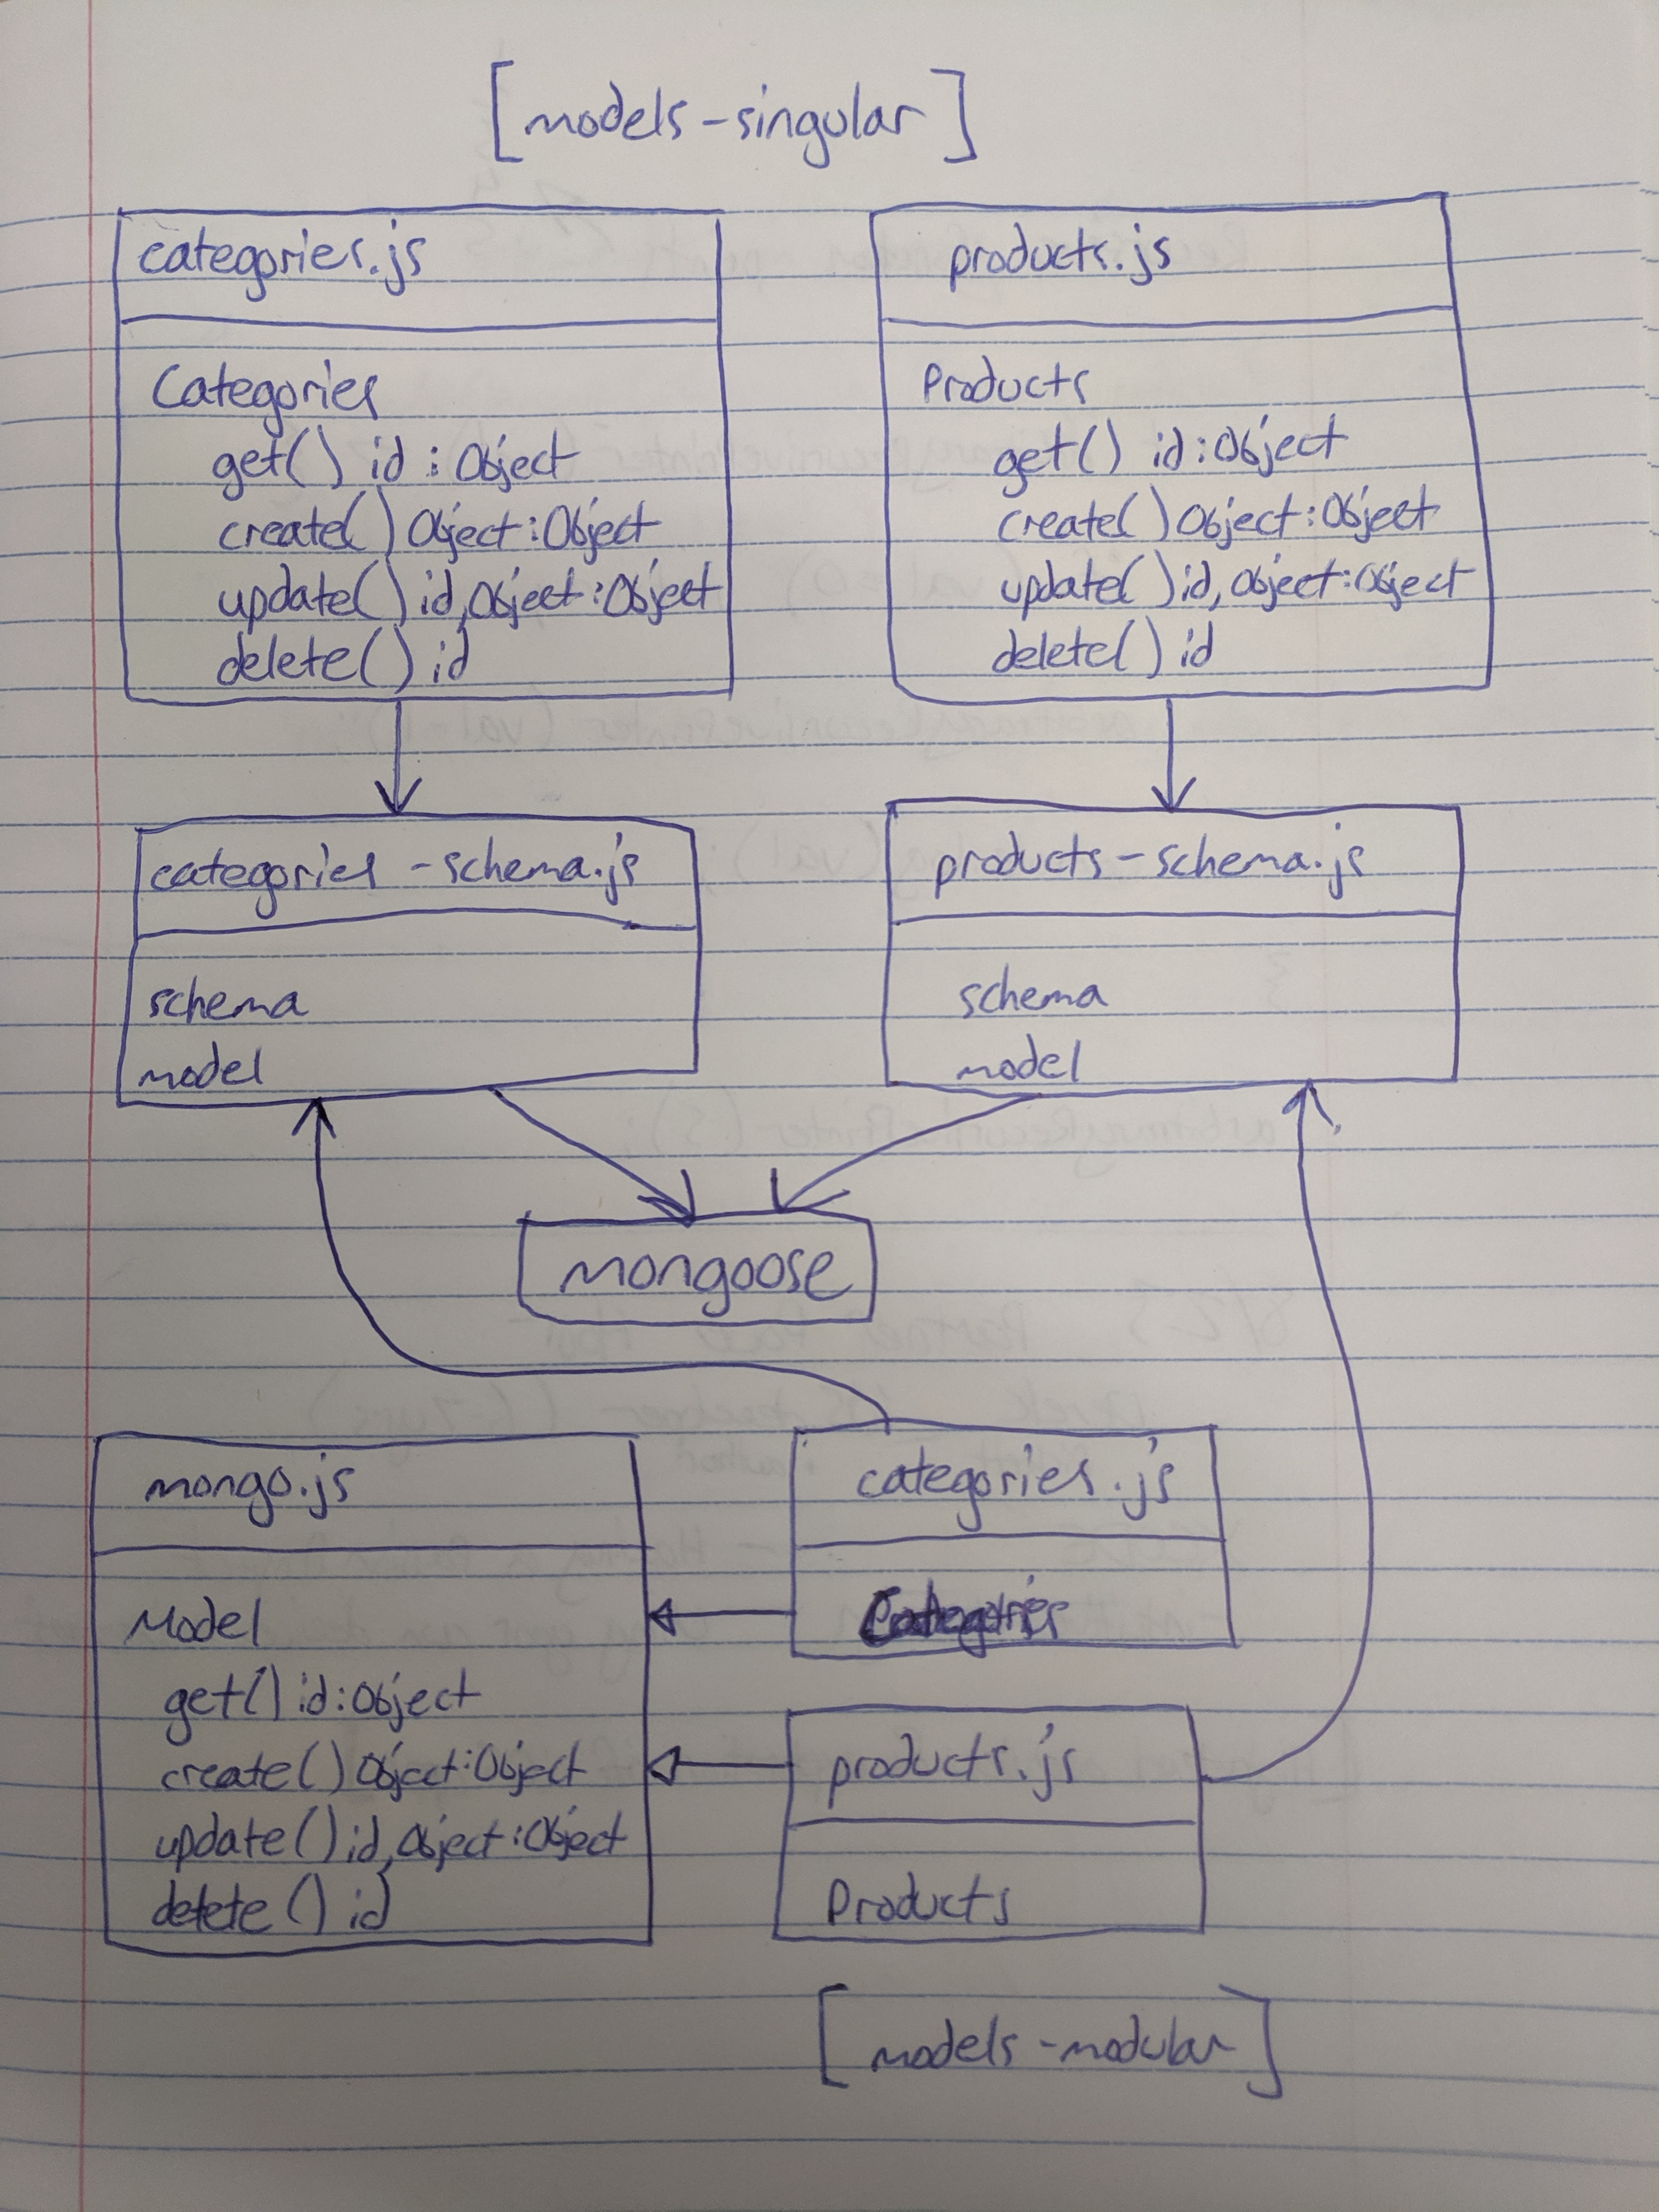 [models-singular]
categories.js
Categories
get() id : Object
create() Object:Object
update() id, Object:Object
delete() id
products.js
Products
get() id:Object
create() Object:Object
update() id, Object:Object
delete() id
categories-schema.js
schema
model
products-schema.js
schema
model
mongoose
mongo.js
Model
get() id:Object
create() Object:Object
update() id, Object:Object
delete() id
categories.js
Categories
products.js
Products
[models-modular]